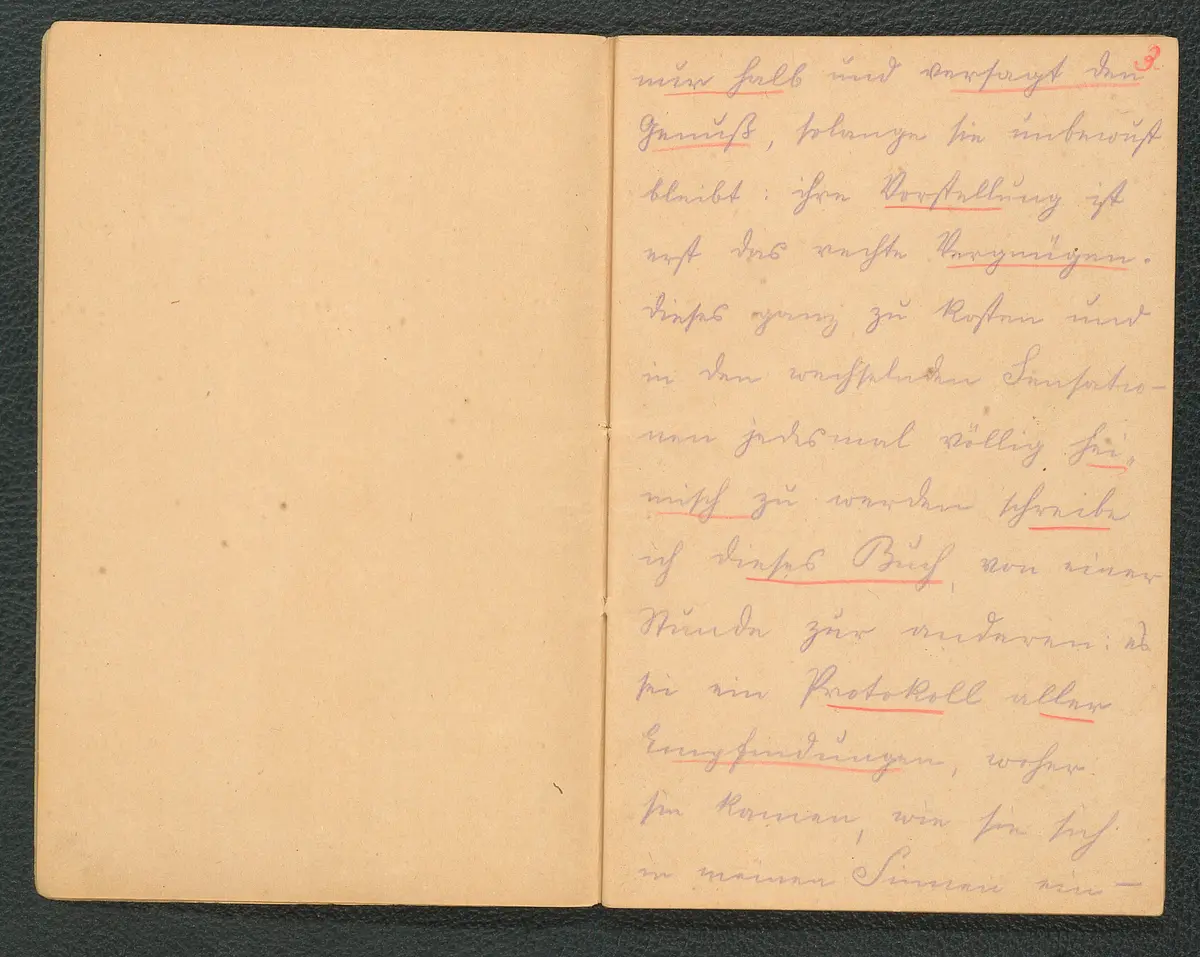 3
nur halb und versagt den
Genuß, solange sie unbewußt
bleibt: ihre Vorstellung ist
erst das rechte Vergnügen.
dieses ganz zu kosten und
in den wechselnden Sensatio-
nen jedesmal völlig hei„
misch zu werden schreibe
ich dieses Buch, von einer
Stunde zur anderen: es
sei ein Protokoll aller
Empfindungen, woher
sie kamen, wie sie sich
in meinen Sinnen ein-